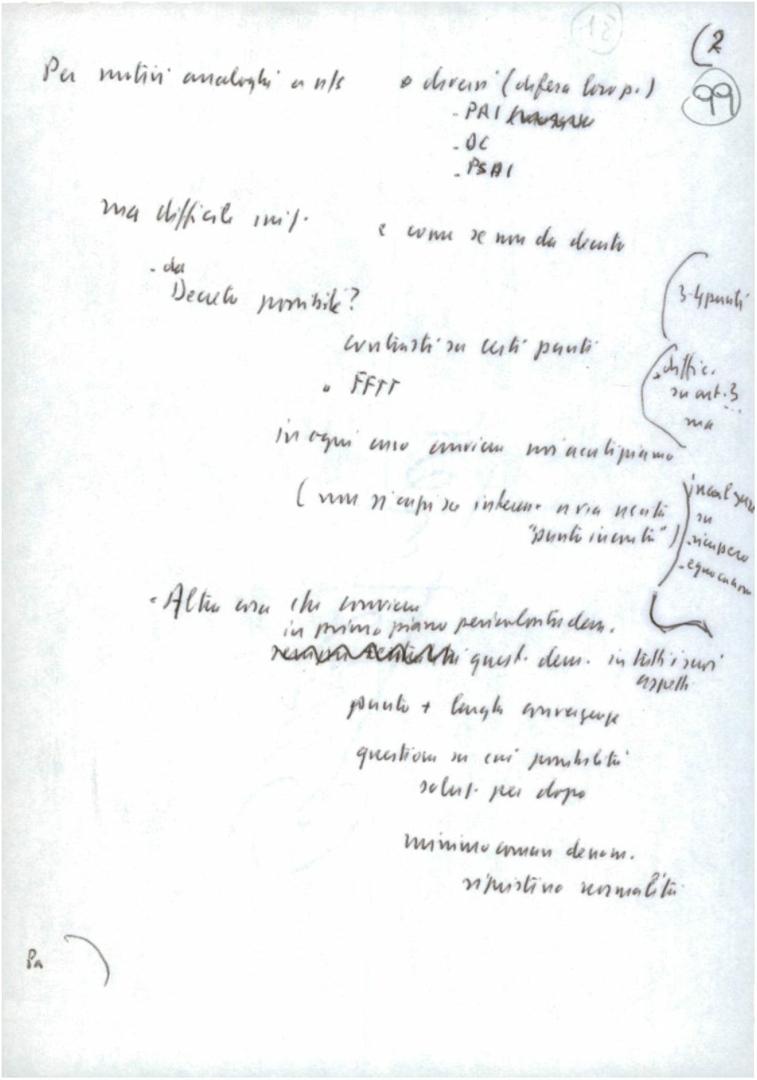 (2
12
99
Per motivi analoghi a n/s
o diversi (difesa loro p.)
- PRI
- DC
- PSDI
ma difficile
è come se non da decreto
- da
Decreto possibile?
3-4 punti
contrasti su certi punti
diffic.
su art. 3
ma
FFTT
in ogni caso conviene noi anticipiamo
(non si capisce interesse a via
"punti")
su
- recupero
- equo canone
- Altra cosa che conviene
in primo piano dem.
quest. dem. in tutti i suoi
aspetti
punto + larga convergenza
questione su cui possibilità
soluz. per dopo
minimo comun denom.
ripristino normalità
Pa